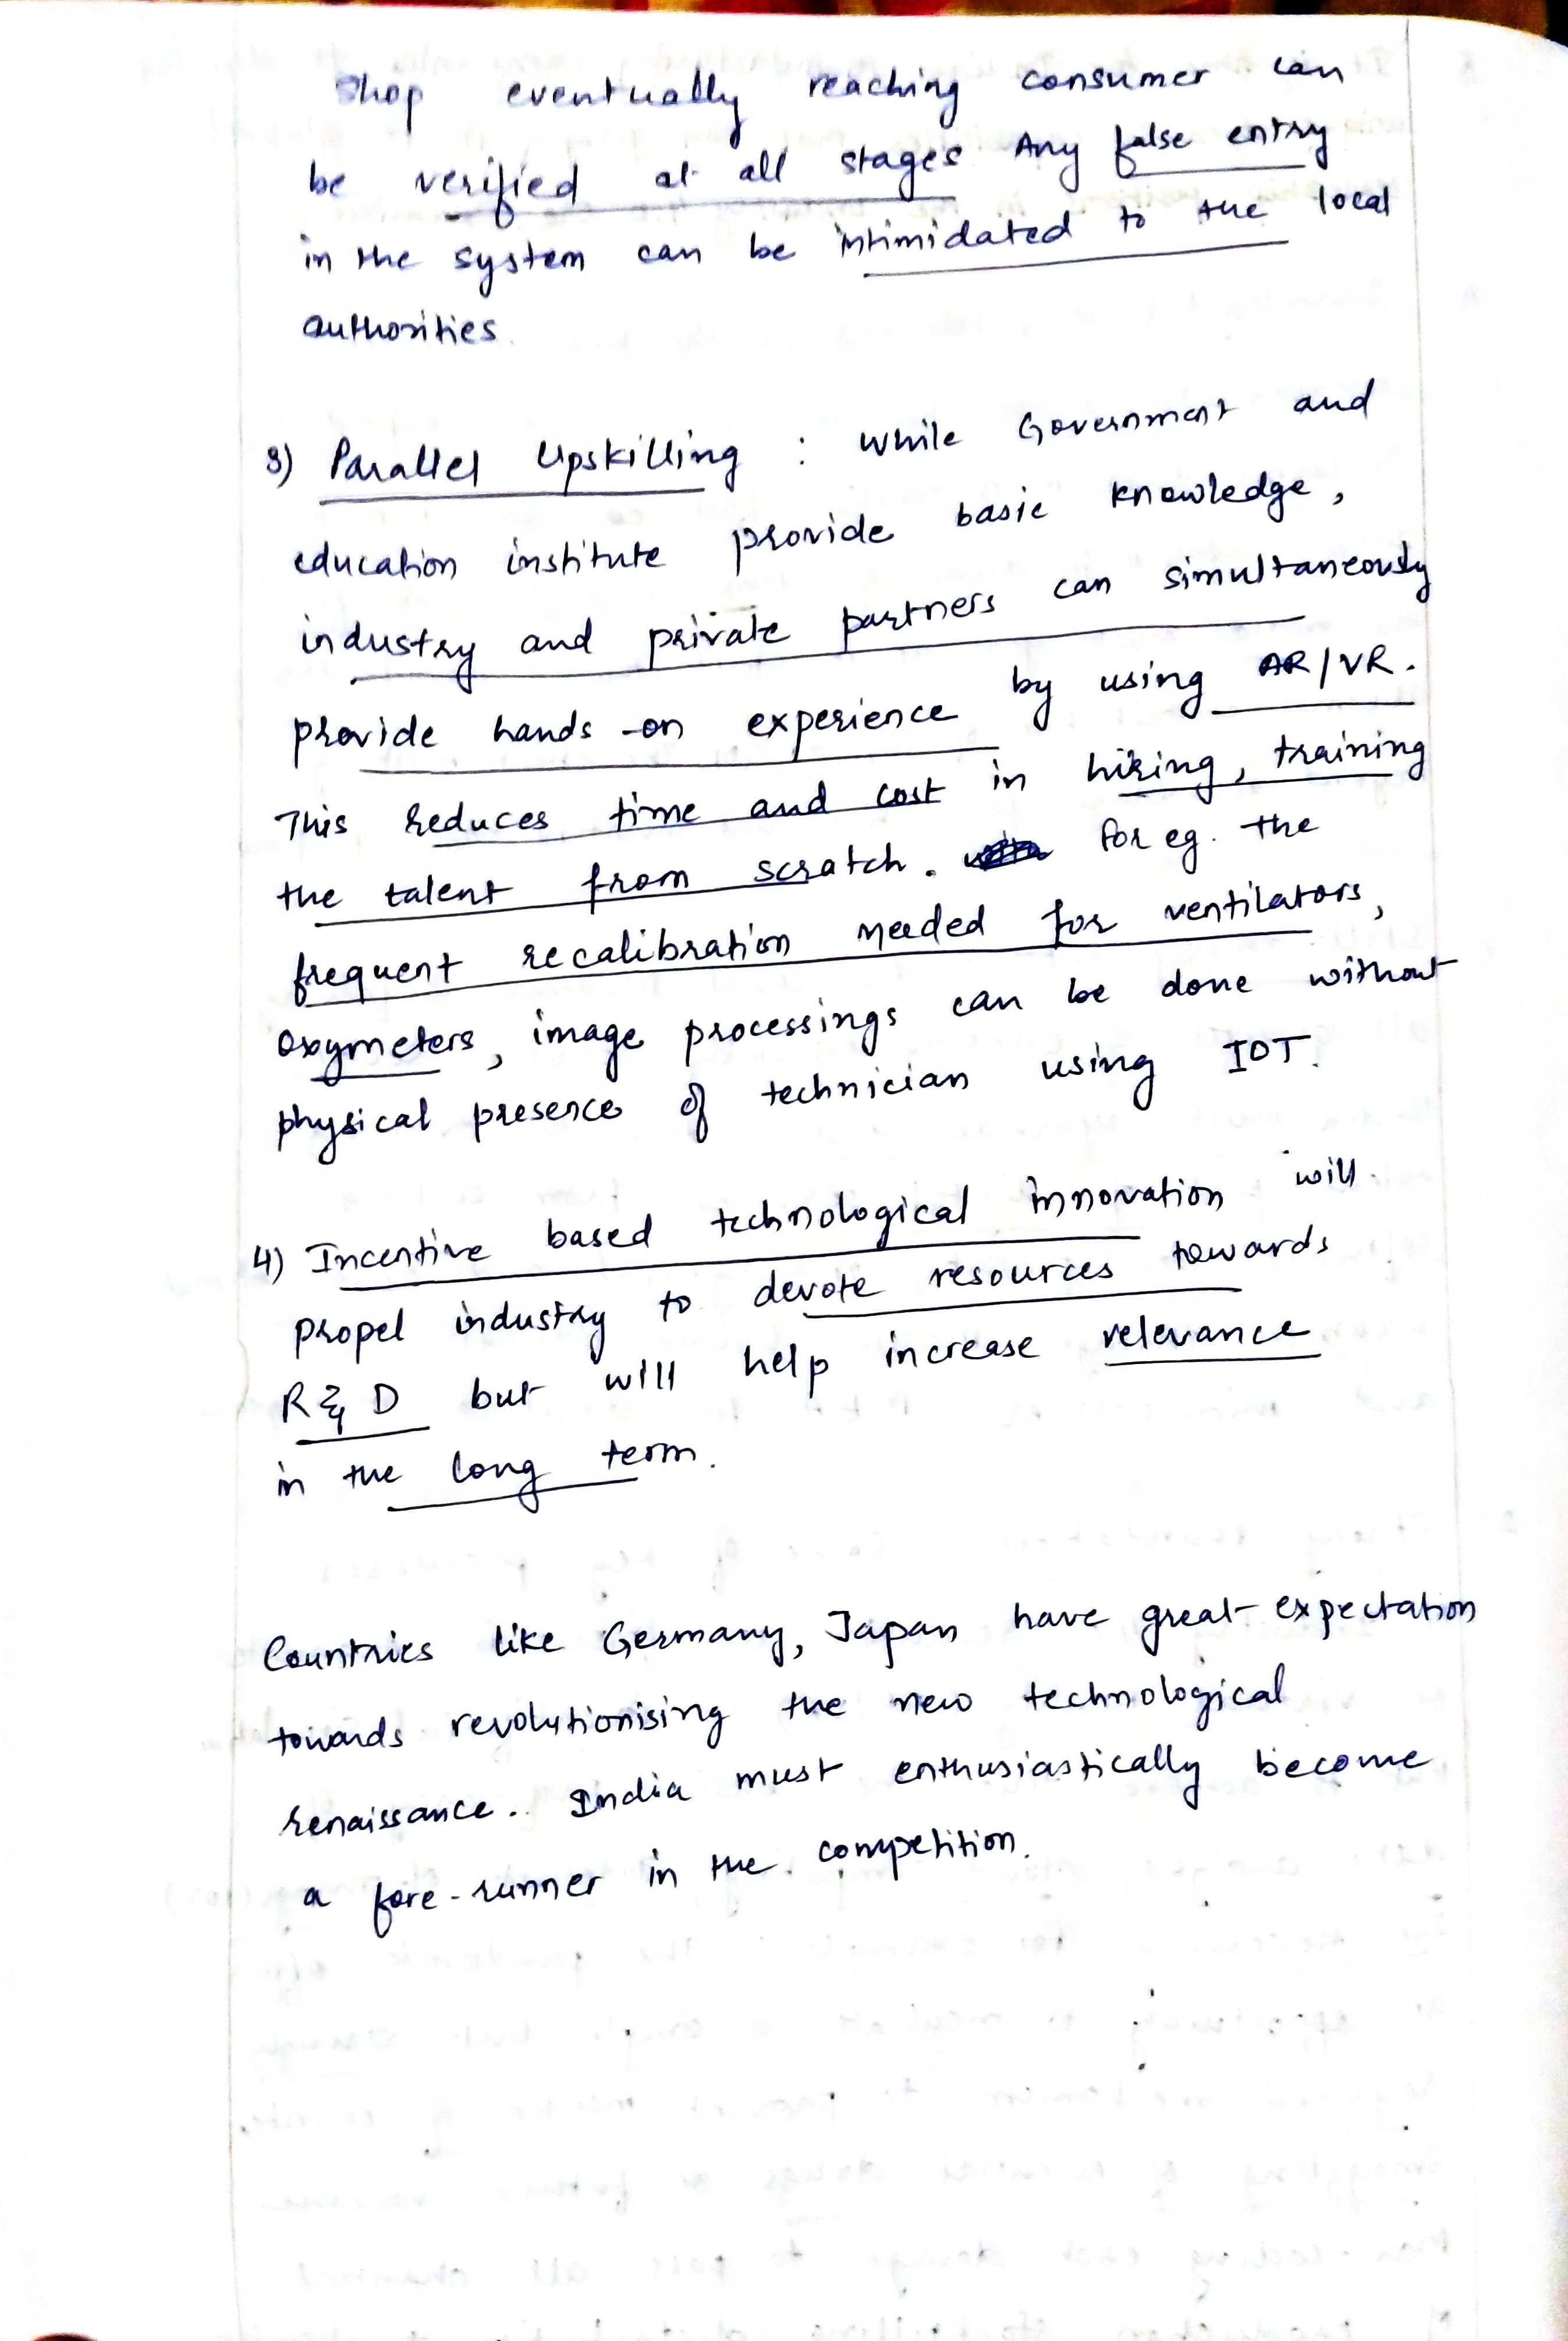 shop eventually reaching consumer can
be verified at all stages Any false entry
in the system can be intimidated to the local
authorities.
3) Parallel Upskilling : While Government and
education institute provide basic knowledge,
industry and private partners can simultaneously
provide hands-on experience by using AR/VR.
This reduces time and cost in hiring, training
the talent from scratch. for eg. the
frequent recalibration needed for ventilators,
oxymeters, image processings can be done without
physical presence of technician using IOT.
4) Incentive based technological innovation will
propel industry to devote resources towards
R & D but will help increase relevance
in the long term.
Countries like Germany, Japan have great expectation
towards revolutionising the new technological
renaissance.. India must enthusiastically become
a fore-runner in the competition.